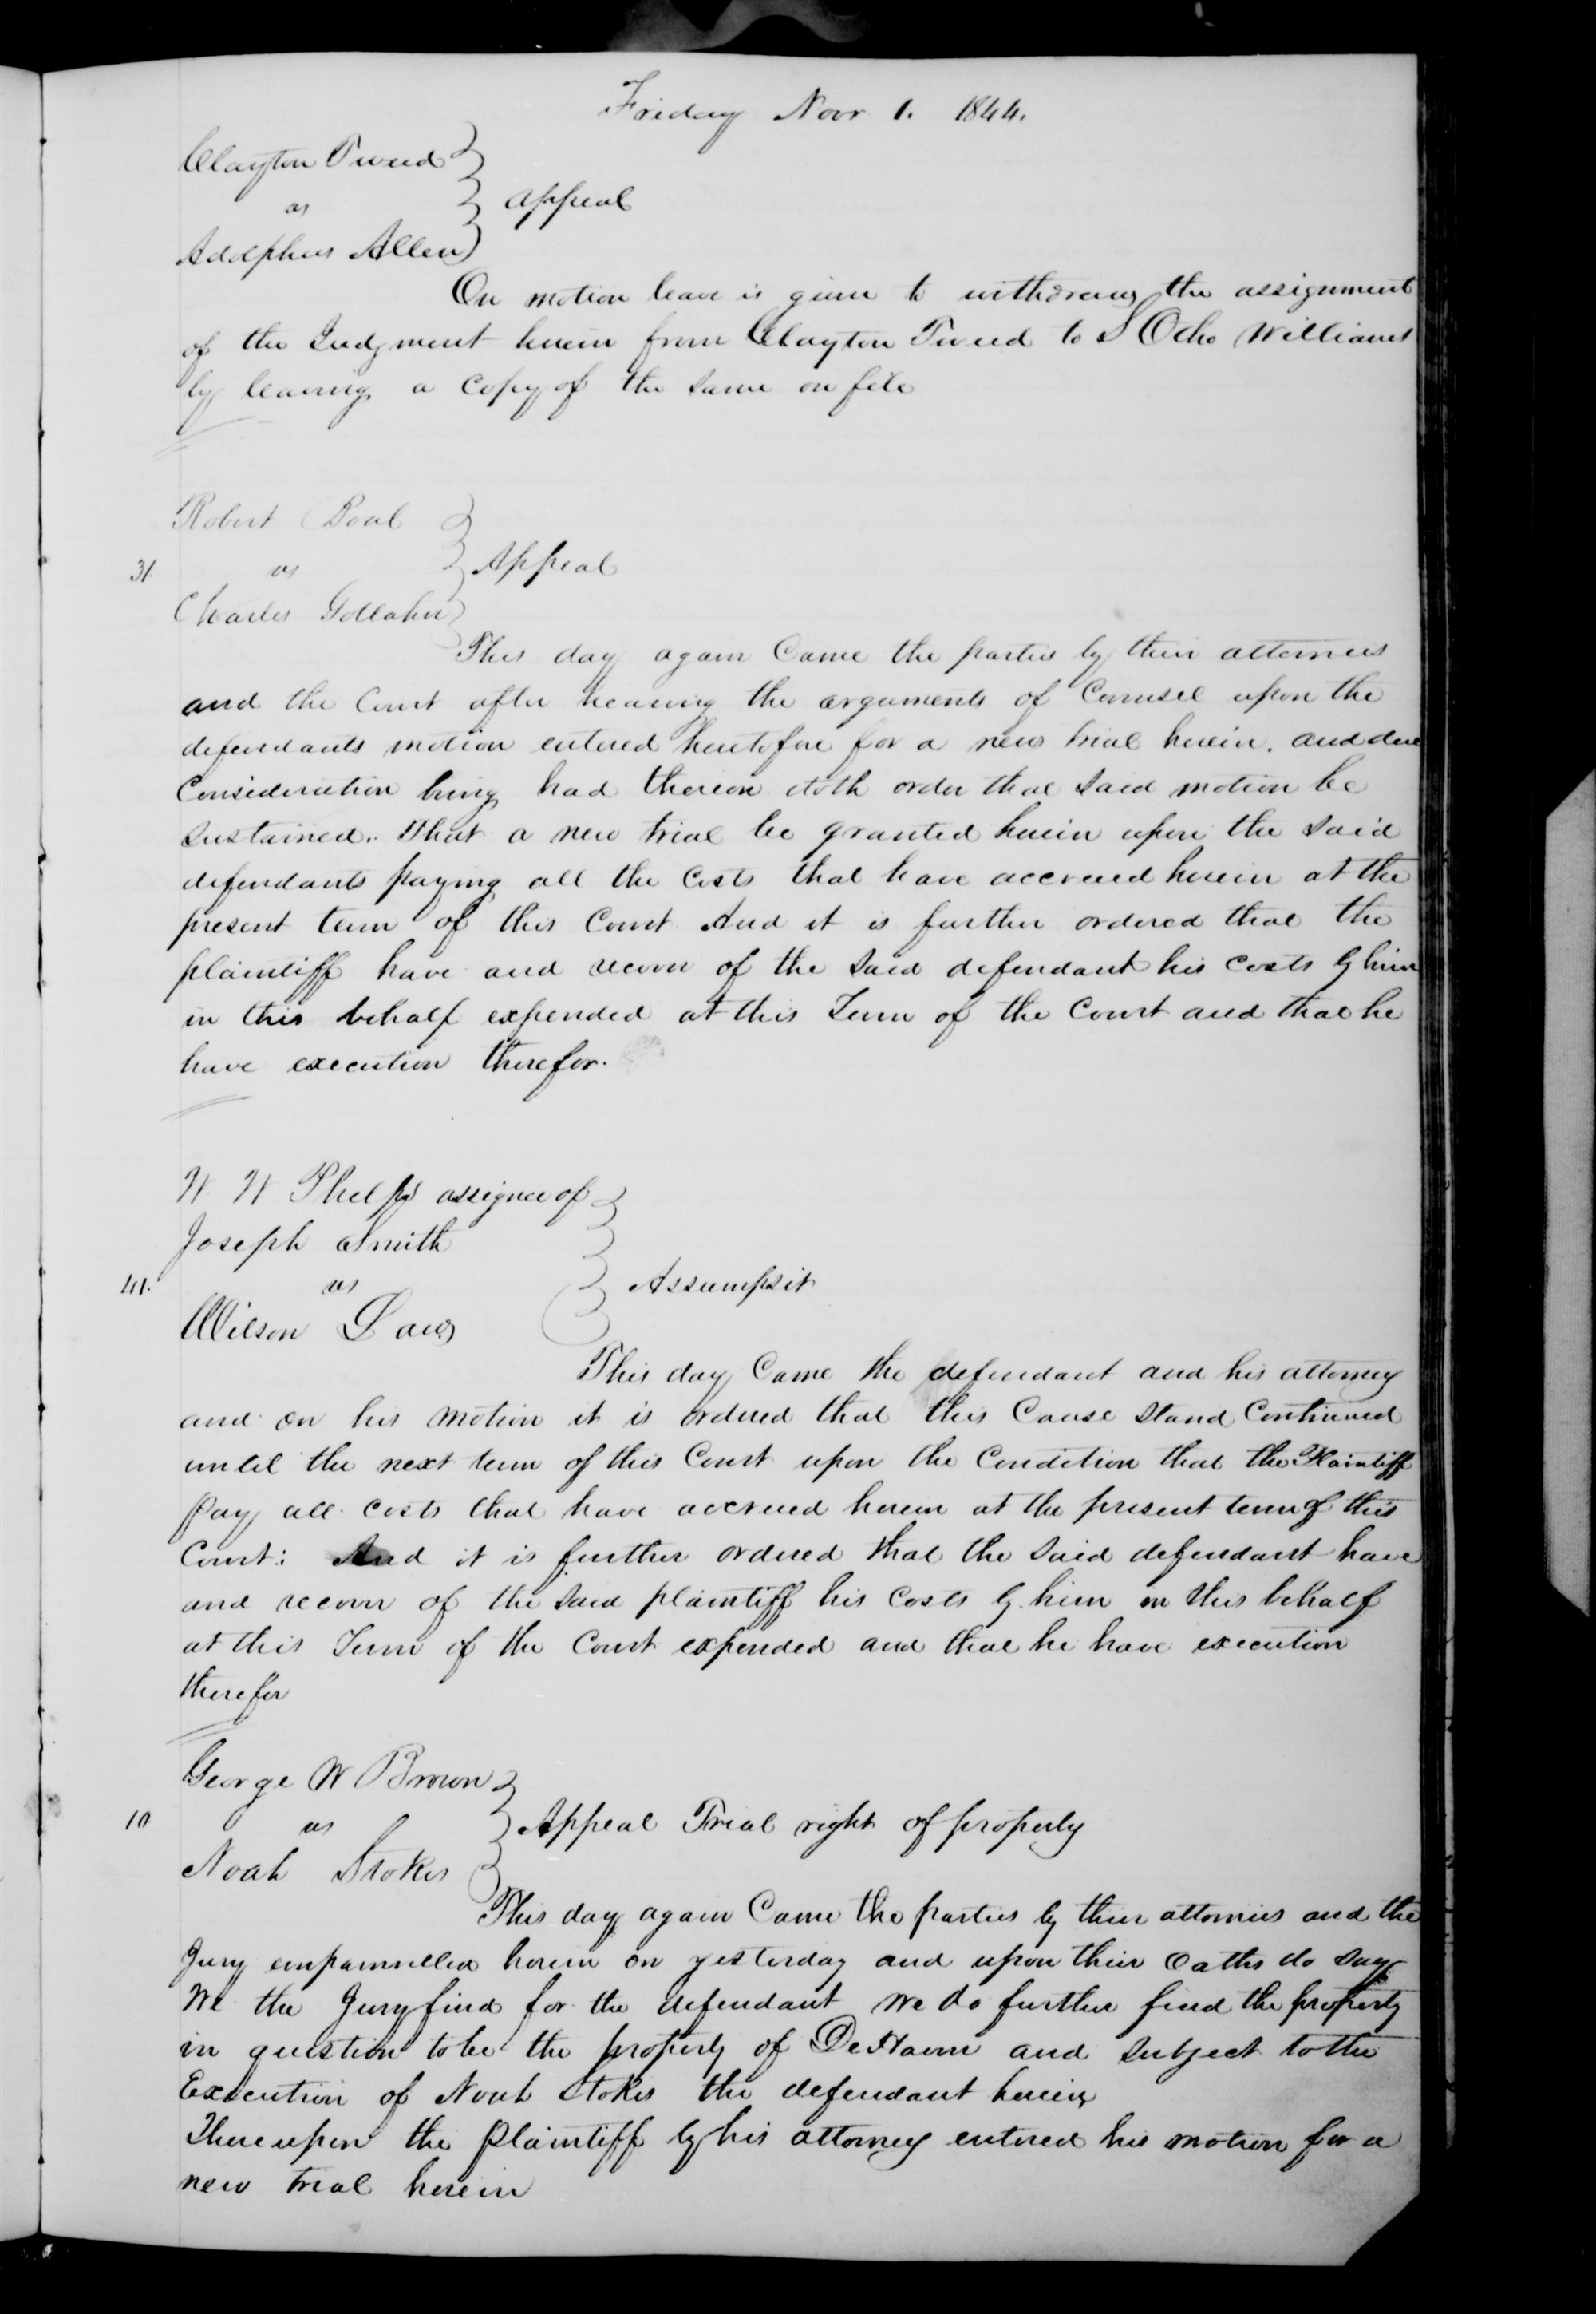 Friday Novr 1. 1844.
Clayton Tweed
vs
Appeal
Adolphus Allen
On motion leave is given to withdraw the assignment
of the Judgment herein from Clayton Tweed to S Otho Williams
by leaving a Copy of the same on file
Robert Boal
31. vs Appeal
Charles Gollaher
This day again Came the parties by their attornies
and the Court after hearing the arguments of Counsel upon the
defendants motion entered heretofore for a new trial herein. and due
Consideration being had thereon doth order that said motion be
sustained. That a new trial be granted herein upon the said
defendants paying all the Costs that have accrued herein at the
present term of this Court And it is further ordered that the
plaintiff have and recover of the said defendant his costs by him
in this behalf expended at this Term of the Court and that he
have execution therefor.
W W Phelps assignee of
Joseph Smith
41. vs Assumpsit
Wilson Law
This day Came the defendant and his attorney
and on his motion it is ordered that this Cause stand Continued
until the next term of this Court upon the Condition that the Plaintiff
pay all costs that have accrued herein at the present term of this
Court: And it is further ordered that the said defendant have
and recover of the said plaintiff his Costs by him in this behalf
at this Term of the Court expended and that he have execution
therefor
George W Brown
10 vs Appeal Trial right of property
Noah Stokes
This day again Came the parties by their attornies and the
Jury empannelled herein on yesterday and upon their oaths do say
We the Jury find for the defendant we do further find the property
in question to be the property of DeHaven and subject to the
Execution of Noah Stokes the defendant herein
Thereupon the plaintiff by his attorney entered his motion for a
new trial herein